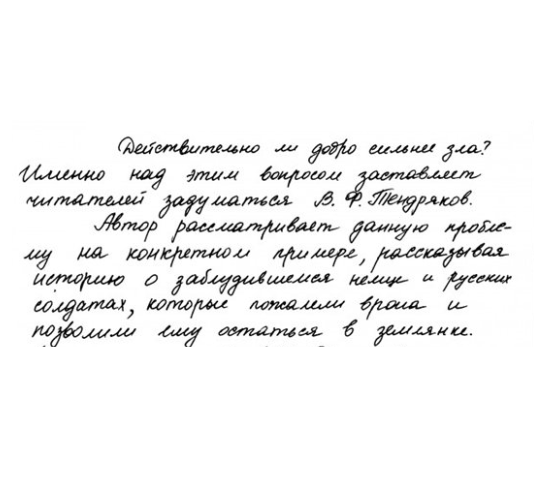 Действительно ли добро сильнее зла?
Именно над этим вопросом заставляет
читателей задуматься В. Ф. Тендряков.
Автор рассматривает данную пробле-
му на конкретном примере, рассказывая
историю о заблудившемся немце и русских
солдатах, которые пожалели врага и
позволили ему остаться в землянке.